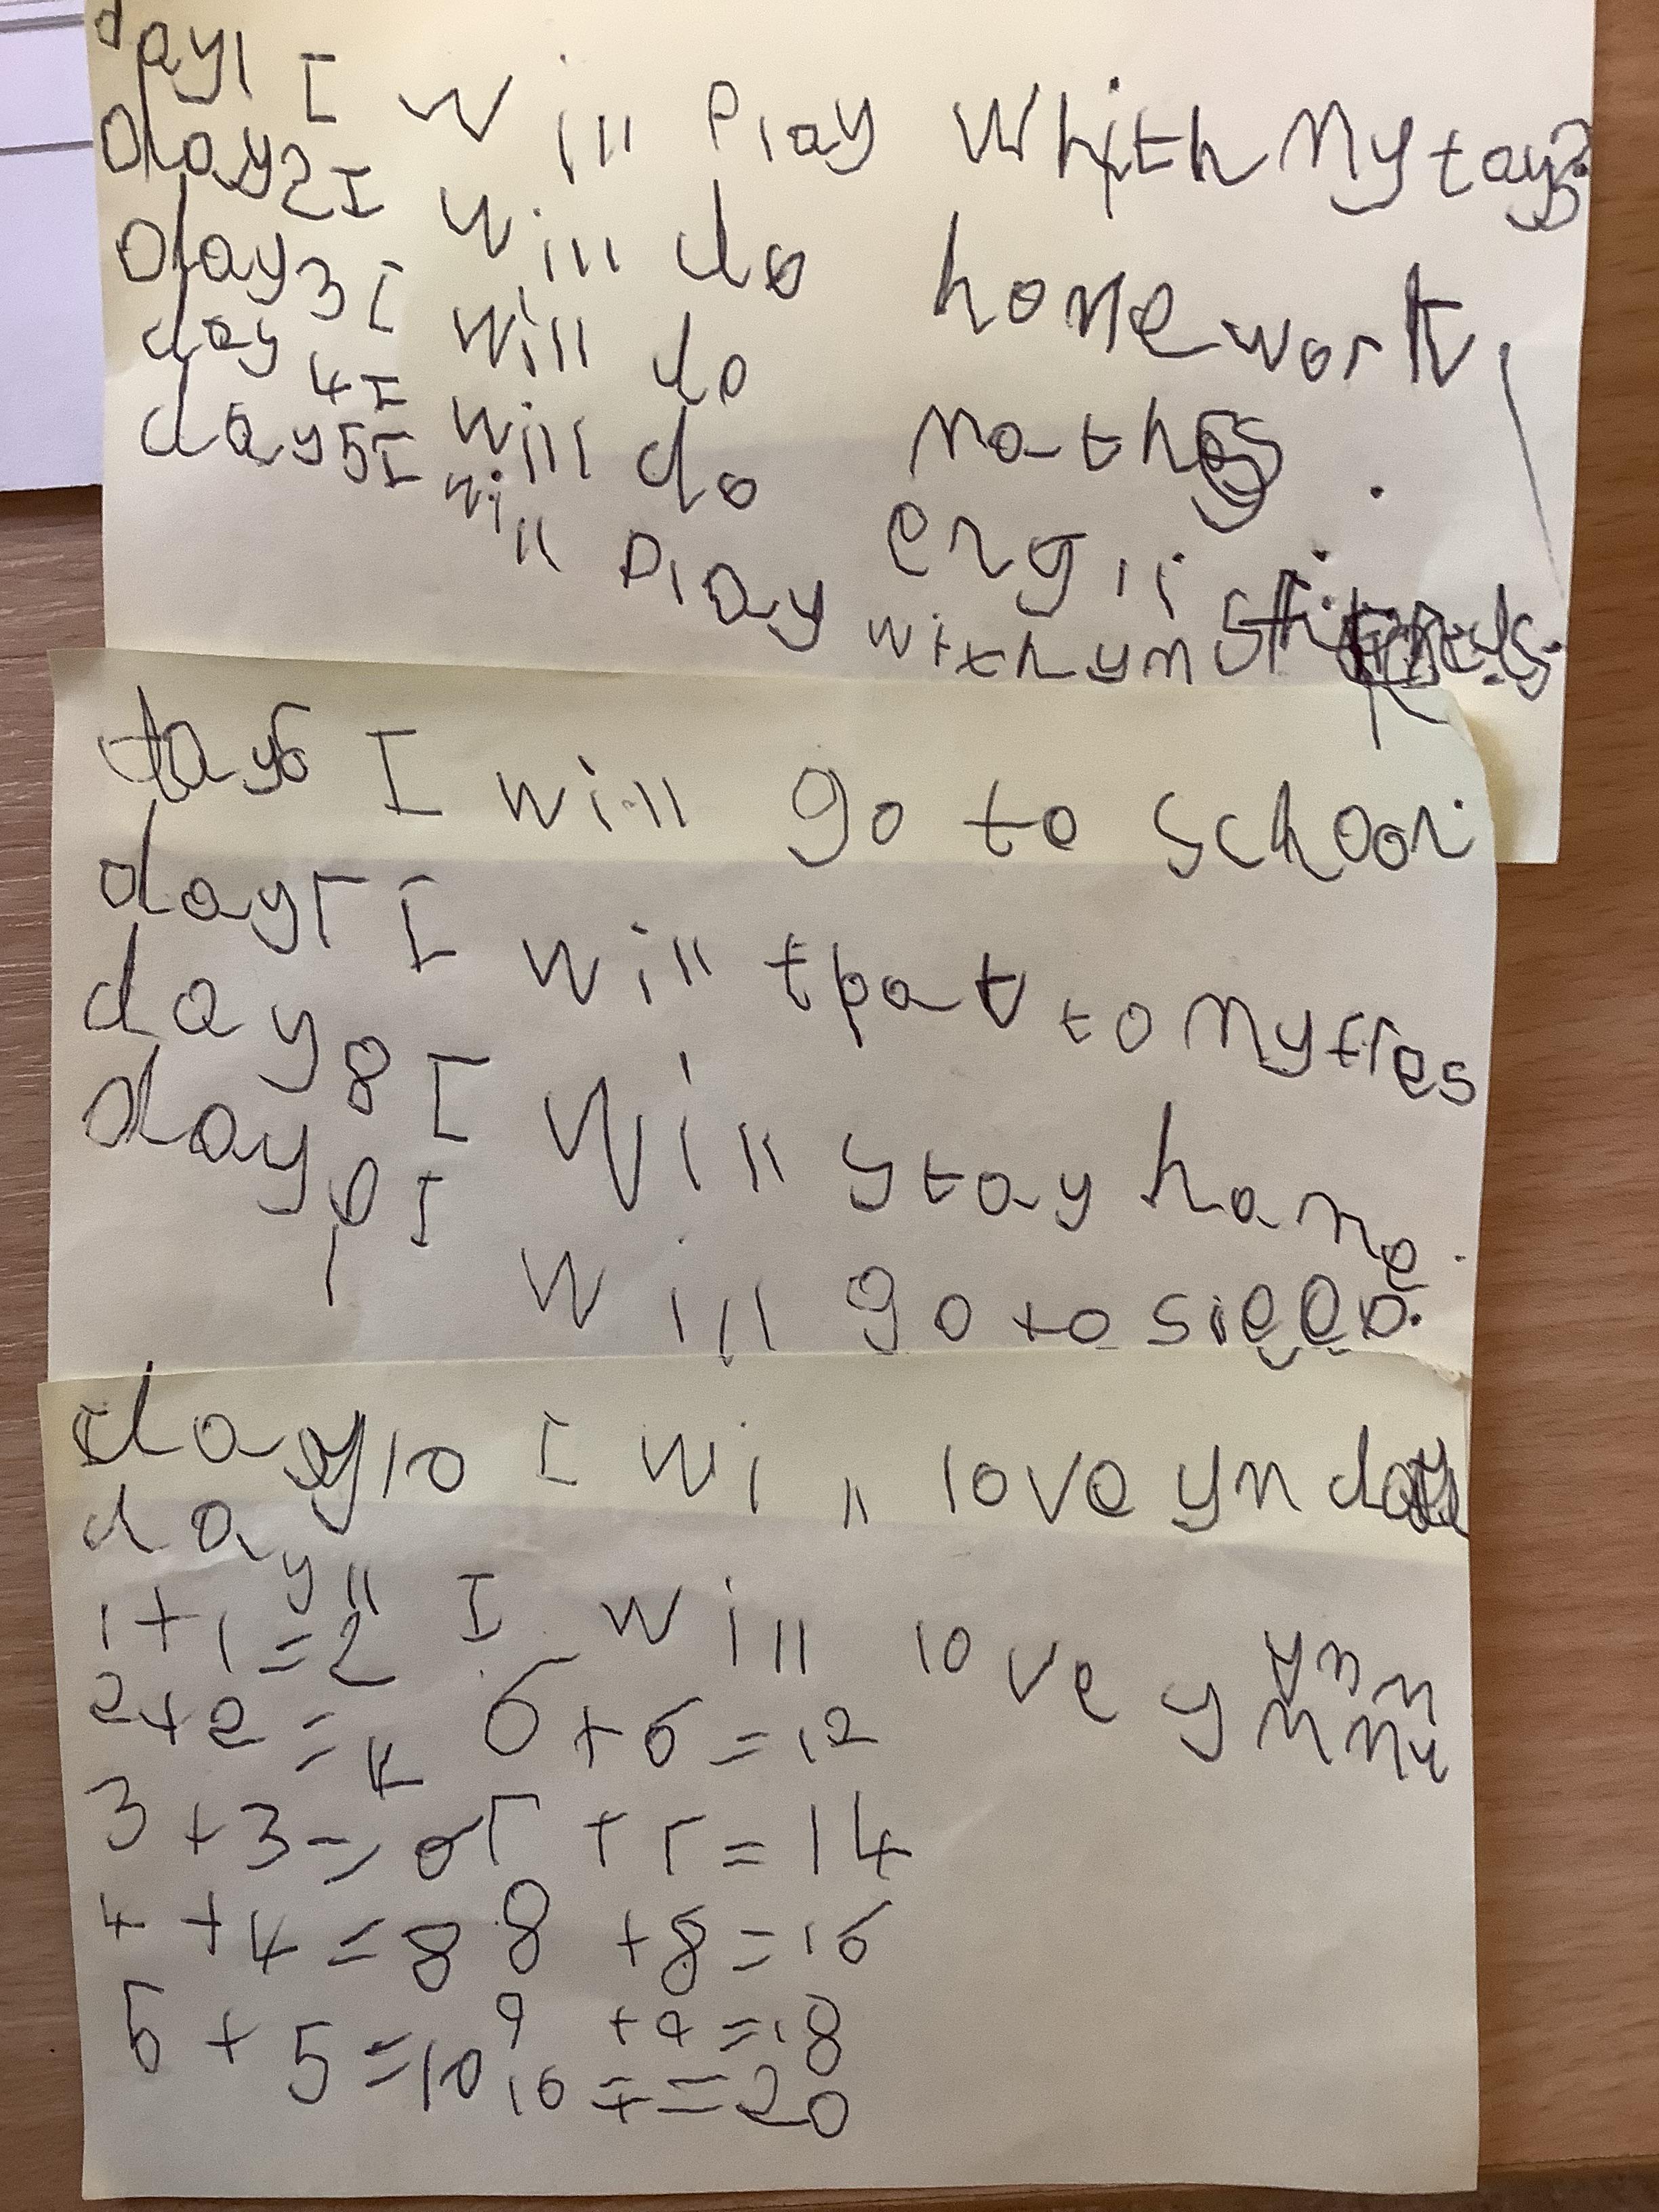 day1 I will Play Whith My tays.
day2 I will do home work
day3 I will do maths.
day 4 I will do english.
day5 I will play with ym
tay6 I will go to school.
day7 I will to My fres
day8 I Will stay hame.
day9 I will go to sleep.
day10 I will love ym
day11 I will love y
ymm
mmy
1+1=2
2+2=4 6+6=12
3+3=6 7+7=14
4+4=8 8+8=16
5+5=10 9+9=18
10 + =20